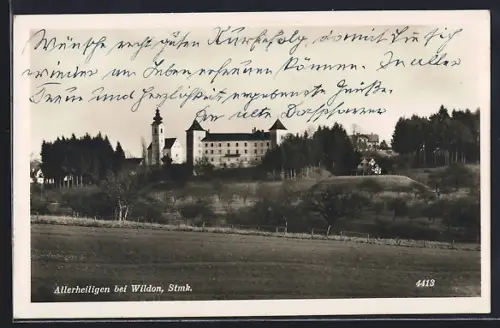 Wünsche recht guten Kurerfolg, damit Sie sich
wieder am Leben erfreuen können. In aller
Treue und Herzlichkeit ergebenste Grüße.
Ihr alter Dorfpfarrer
Allerheiligen bei Wildon, Stmk.
4413